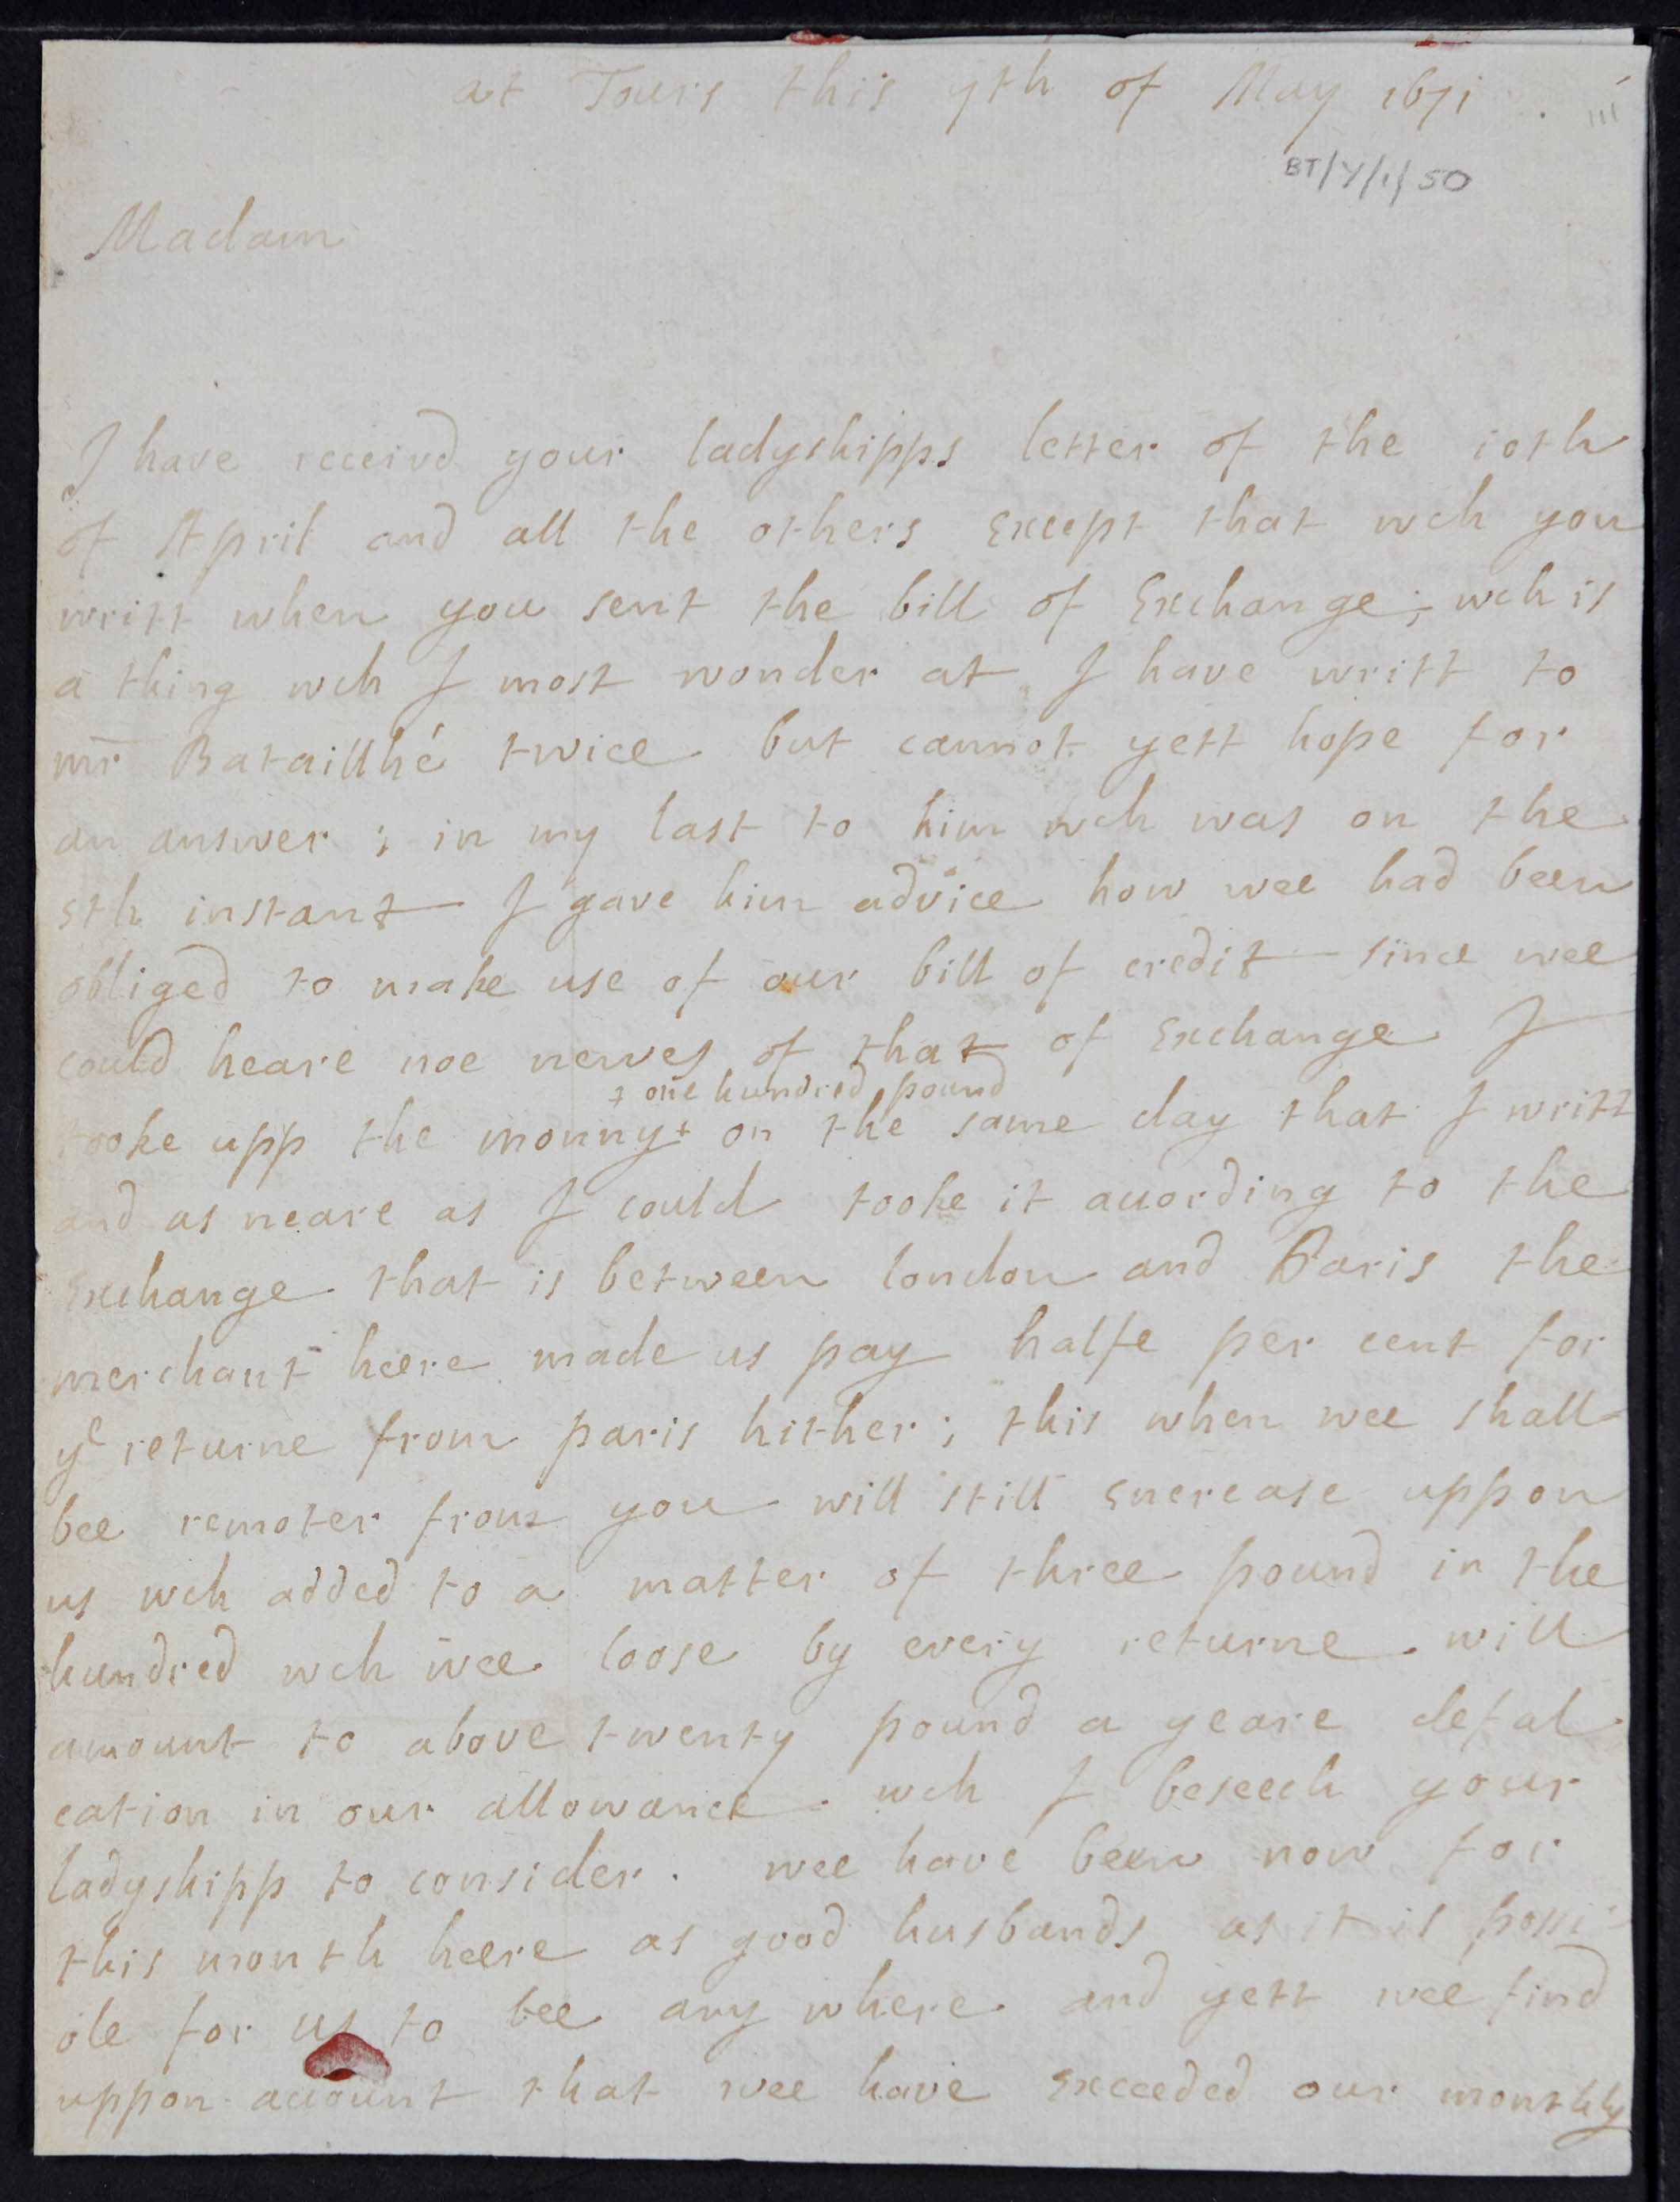 at Tours this 7th of May 1671 .
BT/Y/1/50
Madam
I have receivd your ladyshipps letter of the 10th
of April and all the others Except that wch you
writt when you sent the bill of Exchange; wch is
a thing wch I most wonder at I have writt to
mr Bataillhé twice but cannot yett hope for
an answer ; in my last to him wch was on the
5th instant I gave him advice how wee had been
obliged to make use of our bill of credit since wee
could heare noe newes of that of Exchange I
+ one hundred pound
tooke upp the monny+ on the same day that I writt
and as neare as I could tooke it acording to the
Exchange that is between london and Paris the
merchant heere made us pay halfe per cent for
ye returne from paris hither ; this when wee shall
bee remoter from you will still Encrease uppon
us wch added to a matter of three pound in the
hundred wch wee loose by every returne will
amount to above twenty pound a yeare defal
cation in our allowance wch I beseech your
ladyshipp to consider . wee have been now for
this month heere as good husbands as it is possi-
ble for us to bee any where and yett wee find
uppon account that wee have Exceeded our monthly